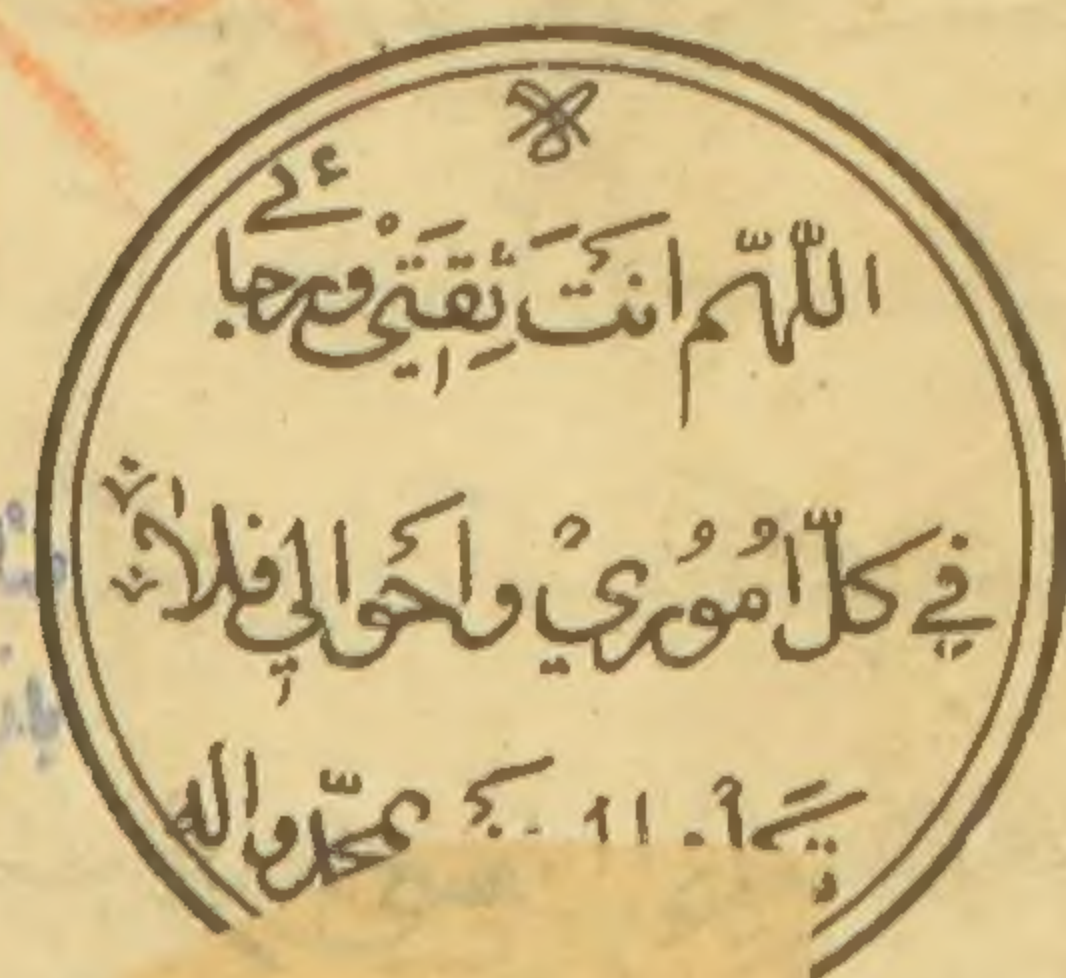 اللّهمّ انتَ ثِقَتِيْ ورجائي
في كلّ امُوُريْ واحَوالي فلا
بمحمّد واله